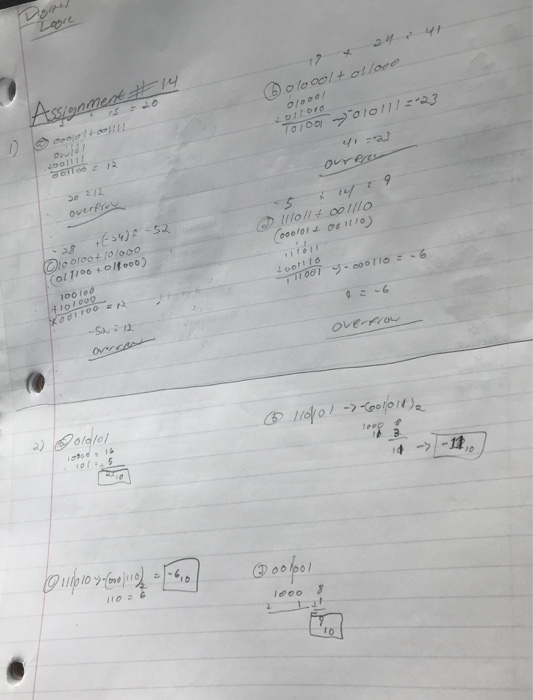 Digital
Logic
Assignment # 14
1)
5 + 15 = 20
ⓐ 000101 + 001111
000101
+001111
001100 = 12
20 ≠ 12
overflow
17 + 24 = 41
ⓑ 010001 + 011000
010001
+011000
101001 → -010111 = -23
41 = -23
overflow
-28 + (-24) = -52
ⓒ 100100 + 101000
(011100 + 011000)
100100
+101000
001100 = 12
-52 = 12
overflow
-5 + 14 = 9
ⓓ 111011 + 001110
(000101 + 001110)
111011
+001110
111001 → -000110 = -6
9 = -6
overflow
2) ⓐ 010101
10000 = 16
101 = 5
ⓑ 110101 → -(001011)₂
1000 8
11 3
11 → -11₁₀
ⓒ 111010 → -(000110)₂ = -6₁₀
110 = 6
ⓓ 001001
1000 8
+ 1 +1
9₁₀